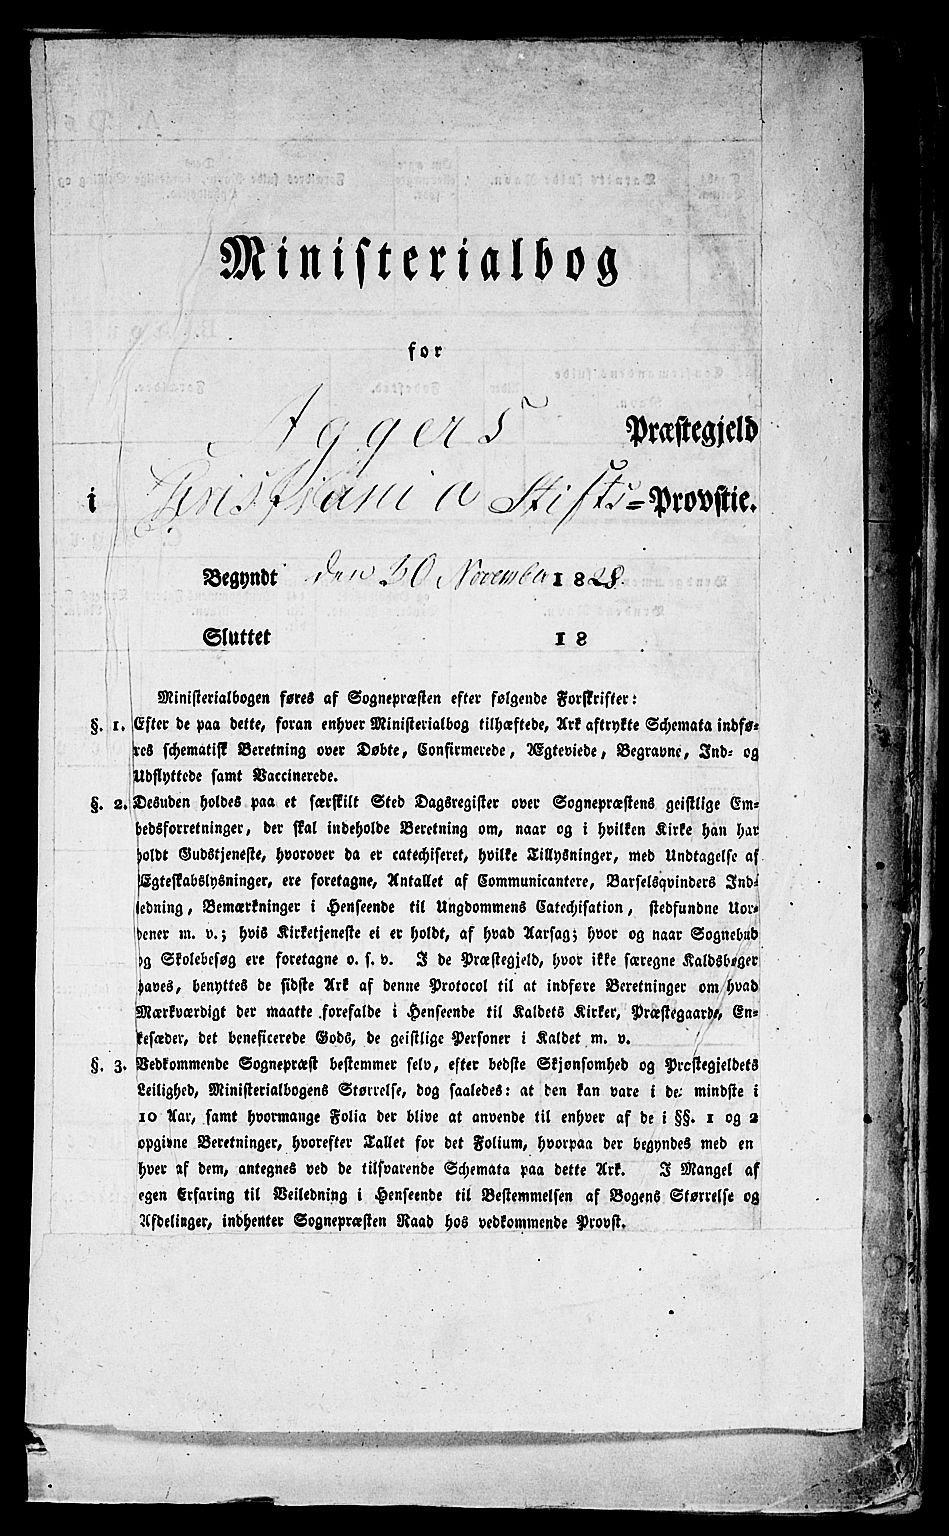 Ministerialbog
for
Aggers Præstegjeld
i Christiania Stifts-Provstie.
Begyndt den 30 November 1828.
Sluttet 18
Ministerialbogen føres af Sognepræsten efter følgende Forskrifter:
§. 1. Efter de paa dette, foran enhver Ministerialbog tilhæftede, Ark aftrykte Schemata indfø-
res schematisk Beretning over Døbte, Confirmerede, Ægteviede, Begravne, Ind- og
Udflyttede samt Vaccinerede.
§. 2. Desuden holdes paa et særskilt Sted Dagsregister over Sognepræstens geistlige Em-
bedsforretninger, der skal indeholde Beretning om, naar og i hvilken Kirke han har
holdt Gudstjeneste, hvorover da er catechiseret, hvilke Tillysninger, med Undtagelse af
Ægteskabslysninger, ere foretagne, Antallet af Communicantere, Barselqvinders Ind-
ledning, Bemærkninger i Henseende til Ungdommens Catechisation, stedfundne Uor-
dener m. v.; hvis Kirketjeneste ei er holdt, af hvad Aarsag; hvor og naar Sognebud
og Skolebesøg ere foretagne o. s. v. I de Præstegjeld, hvor ikke særegne Kaldsbøger
haves, benyttes de sidste Ark af denne Protocol til at indføre Beretninger om hvad
Mærkværdigt der maatte forefalde i Henseende til Kaldets Kirker, Præstegaarde, En-
kesæder, det beneficerede Gods, de geistlige Personer i Kaldet m. v.
§. 3. Vedkommende Sognepræst bestemmer selv, efter bedste Skjønsomhed og Præstegjeldets
Leilighed, Ministerialbogens Størrelse, dog saaledes: at den kan vare i det mindste i
10 Aar, samt hvormange Folia der blive at anvende til enhver af de i §§. 1 og 2
opgivne Beretninger, hvorefter Tallet for det Folium, hvorpaa der begyndes med en
hver af dem, antegnes ved de tilsvarende Schemata paa dette Ark. I Mangel af
egen Erfaring til Veiledning i Henseende til Bestemmelsen af Bogens Størrelse og
Afdelinger, indhenter Sognepræsten Raad hos vedkommende Provst.